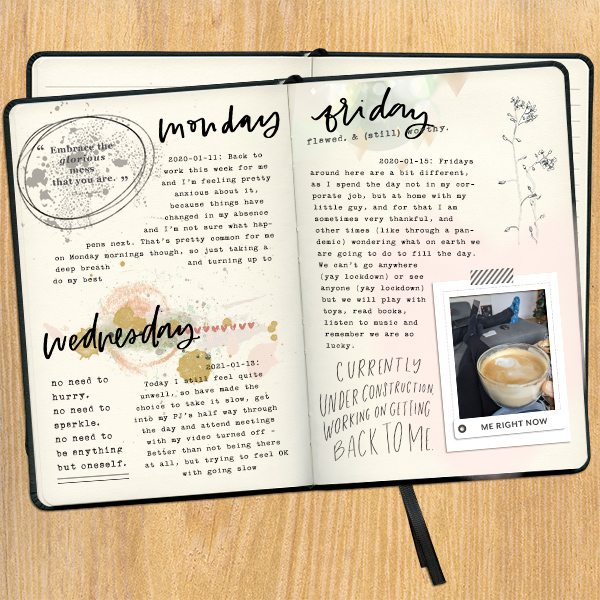 monday
“ Embrace the
glorious
mess
that you are. ”
2020-01-11: Back to
work this week for me
and I'm feeling pretty
anxious about it,
because things have
changed in my absence
and I'm not sure what hap-
pens next. That's pretty common for me
on Monday mornings though, so just taking a
deep breath and turning up to
do my best
wednesday
no need to
hurry.
no need to
sparkle.
no need to
be anything
but oneself.
2021-01-13:
Today I still feel quite
unwell, so have made the
choice to take it slow, get
into my PJ's half way through
the day and attend meetings
with my video turned off -
Better than not being there
at all, but trying to feel OK
with going slow
friday
flawed. & (still) worthy.
2020-01-15: Fridays
around here are a bit different,
as I spend the day not in my cor-
porate job, but at home with my
little guy, and for that I am
sometimes very thankful, and
other times (like through a pan-
demic) wondering what on earth we
are going to do to fill the day.
We can't go anywhere
(yay lockdown) or see
anyone (yay lockdown)
but we will play with
toys, read books,
listen to music and
remember we are so
lucky.
CURRENTLY
UNDER CONSTRUCTION
WORKING ON GETTING
BACK TO ME.
ME RIGHT NOW